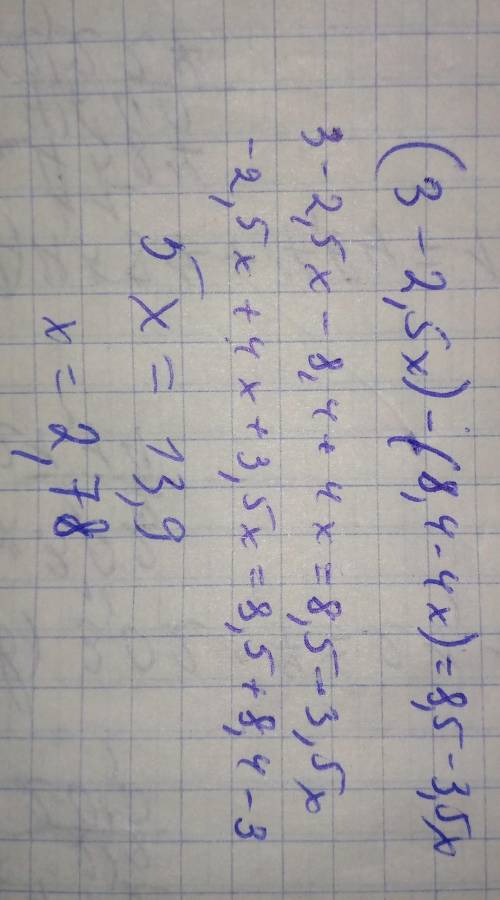 (3 - 2,5x) - (8,4 - 4x) = 8,5 - 3,5x
3 - 2,5x - 8,4 + 4x = 8,5 - 3,5x
-2,5x + 4x + 3,5x = 8,5 + 8,4 - 3
5x = 13,9
x = 2,78